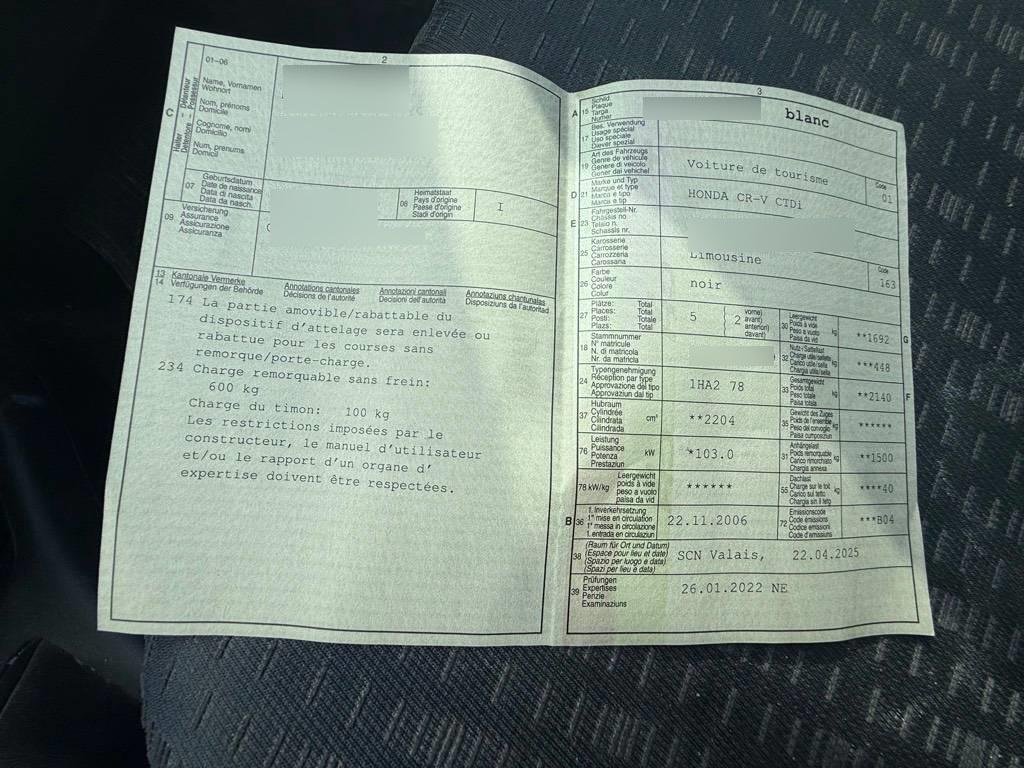 2
01-06
C
Halter - Détenteur
Detentore - Possessur
Name, Vornamen
Wohnort
Nom, prénoms
Domicile
Cognome, nomi
Domicilio
Num, prenums
Domicil
07
Geburtsdatum
Date de naissance
Data di nascita
Data da nasch.
08
Heimatstaat
Pays d'origine
Paese d'origine
Stadi d'origin
I
09
Versicherung
Assurance
Assicurazione
Assicuranza
13
14
Kantonale Vermerke
Verfügungen der Behörde
Annotations cantonales
Décisions de l'autorité
Annotazioni cantonali
Decisioni dell'autorità
Annotaziuns chantunalas
Disposiziuns da l'autoritad
174 La partie amovible/rabattable du
dispositif d'attelage sera enlevée ou
rabattue pour les courses sans
remorque/porte-charge.
234 Charge remorquable sans frein:
600 kg
Charge du timon: 100 kg
Les restrictions imposées par le
constructeur, le manuel d'utilisateur
et/ou le rapport d'un organe d'
expertise doivent être respectées.
3
A 15
Schild
Plaque
Targa
Numer
blanc
17
Bes. Verwendung
Usage spécial
Uso speciale
Diever spezial
19
Art des Fahrzeugs
Genre de véhicule
Genere di veicolo
Gener dal vehichel
Voiture de tourisme
Code
01
D 21
Marke und Typ
Marque et type
Marca e tipo
Marca e tip
HONDA CR-V CTDi
E 23
Fahrgestell-Nr.
Châssis no
Telaio n.
Schassis nr.
25
Karosserie
Carrosserie
Carrozzeria
Carossaria
Limousine
Code
163
26
Farbe
Couleur
Colore
Colur
noir
27
Plätze: Total
Places: Total
Posti: Totale
Plazs: Total
5
2
vorne)
avant)
anteriori)
davant)
30
Leergewicht
Poids à vide
Peso a vuoto
Paisa da vid
kg
**1692
G
18
Stammnummer
N° matricule
N. di matricola
Nr. da matricla
32
Nutz-/Sattellast
Charge utile/sellette
Carico utile/sella
Chargia utila/sella
kg
***448
24
Typengenehmigung
Réception par type
Approvazione del tipo
Approvaziun dal tip
1HA2 78
33
Gesamtgewicht
Poids total
Peso totale
Paisa totala
kg
**2140
F
37
Hubraum
Cylindrée
Cilindrata
Cilindrada
cm³
**2204
35
Gewicht des Zuges
Poids de l'ensemble
Peso del convoglio
Paisa cumposiziun
kg
******
76
Leistung
Puissance
Potenza
Prestaziun
kW
*103.0
31
Anhängelast
Poids remorquable
Carico rimorchiato
Chargia annexa
kg
**1500
78
kW/kg
Leergewicht
poids à vide
peso a vuoto
paisa da vid
******
55
Dachlast
Charge sur le toit
Carico sul tetto
Chargia sin il tetg
kg
****40
B 36
1. Inverkehrsetzung
1re mise en circulation
1a messa in circolazione
1. entrada en circulaziun
22.11.2006
72
Emissionscode
Code émissions
Codice emissioni
Code d'emissiuns
***B04
38
(Raum für Ort und Datum)
(Espace pour lieu et date)
(Spazio per luogo e data)
(Spazi per lieu e data)
SCN Valais, 22.04.2025
39
Prüfungen
Expertises
Perizie
Examinaziuns
26.01.2022 NE